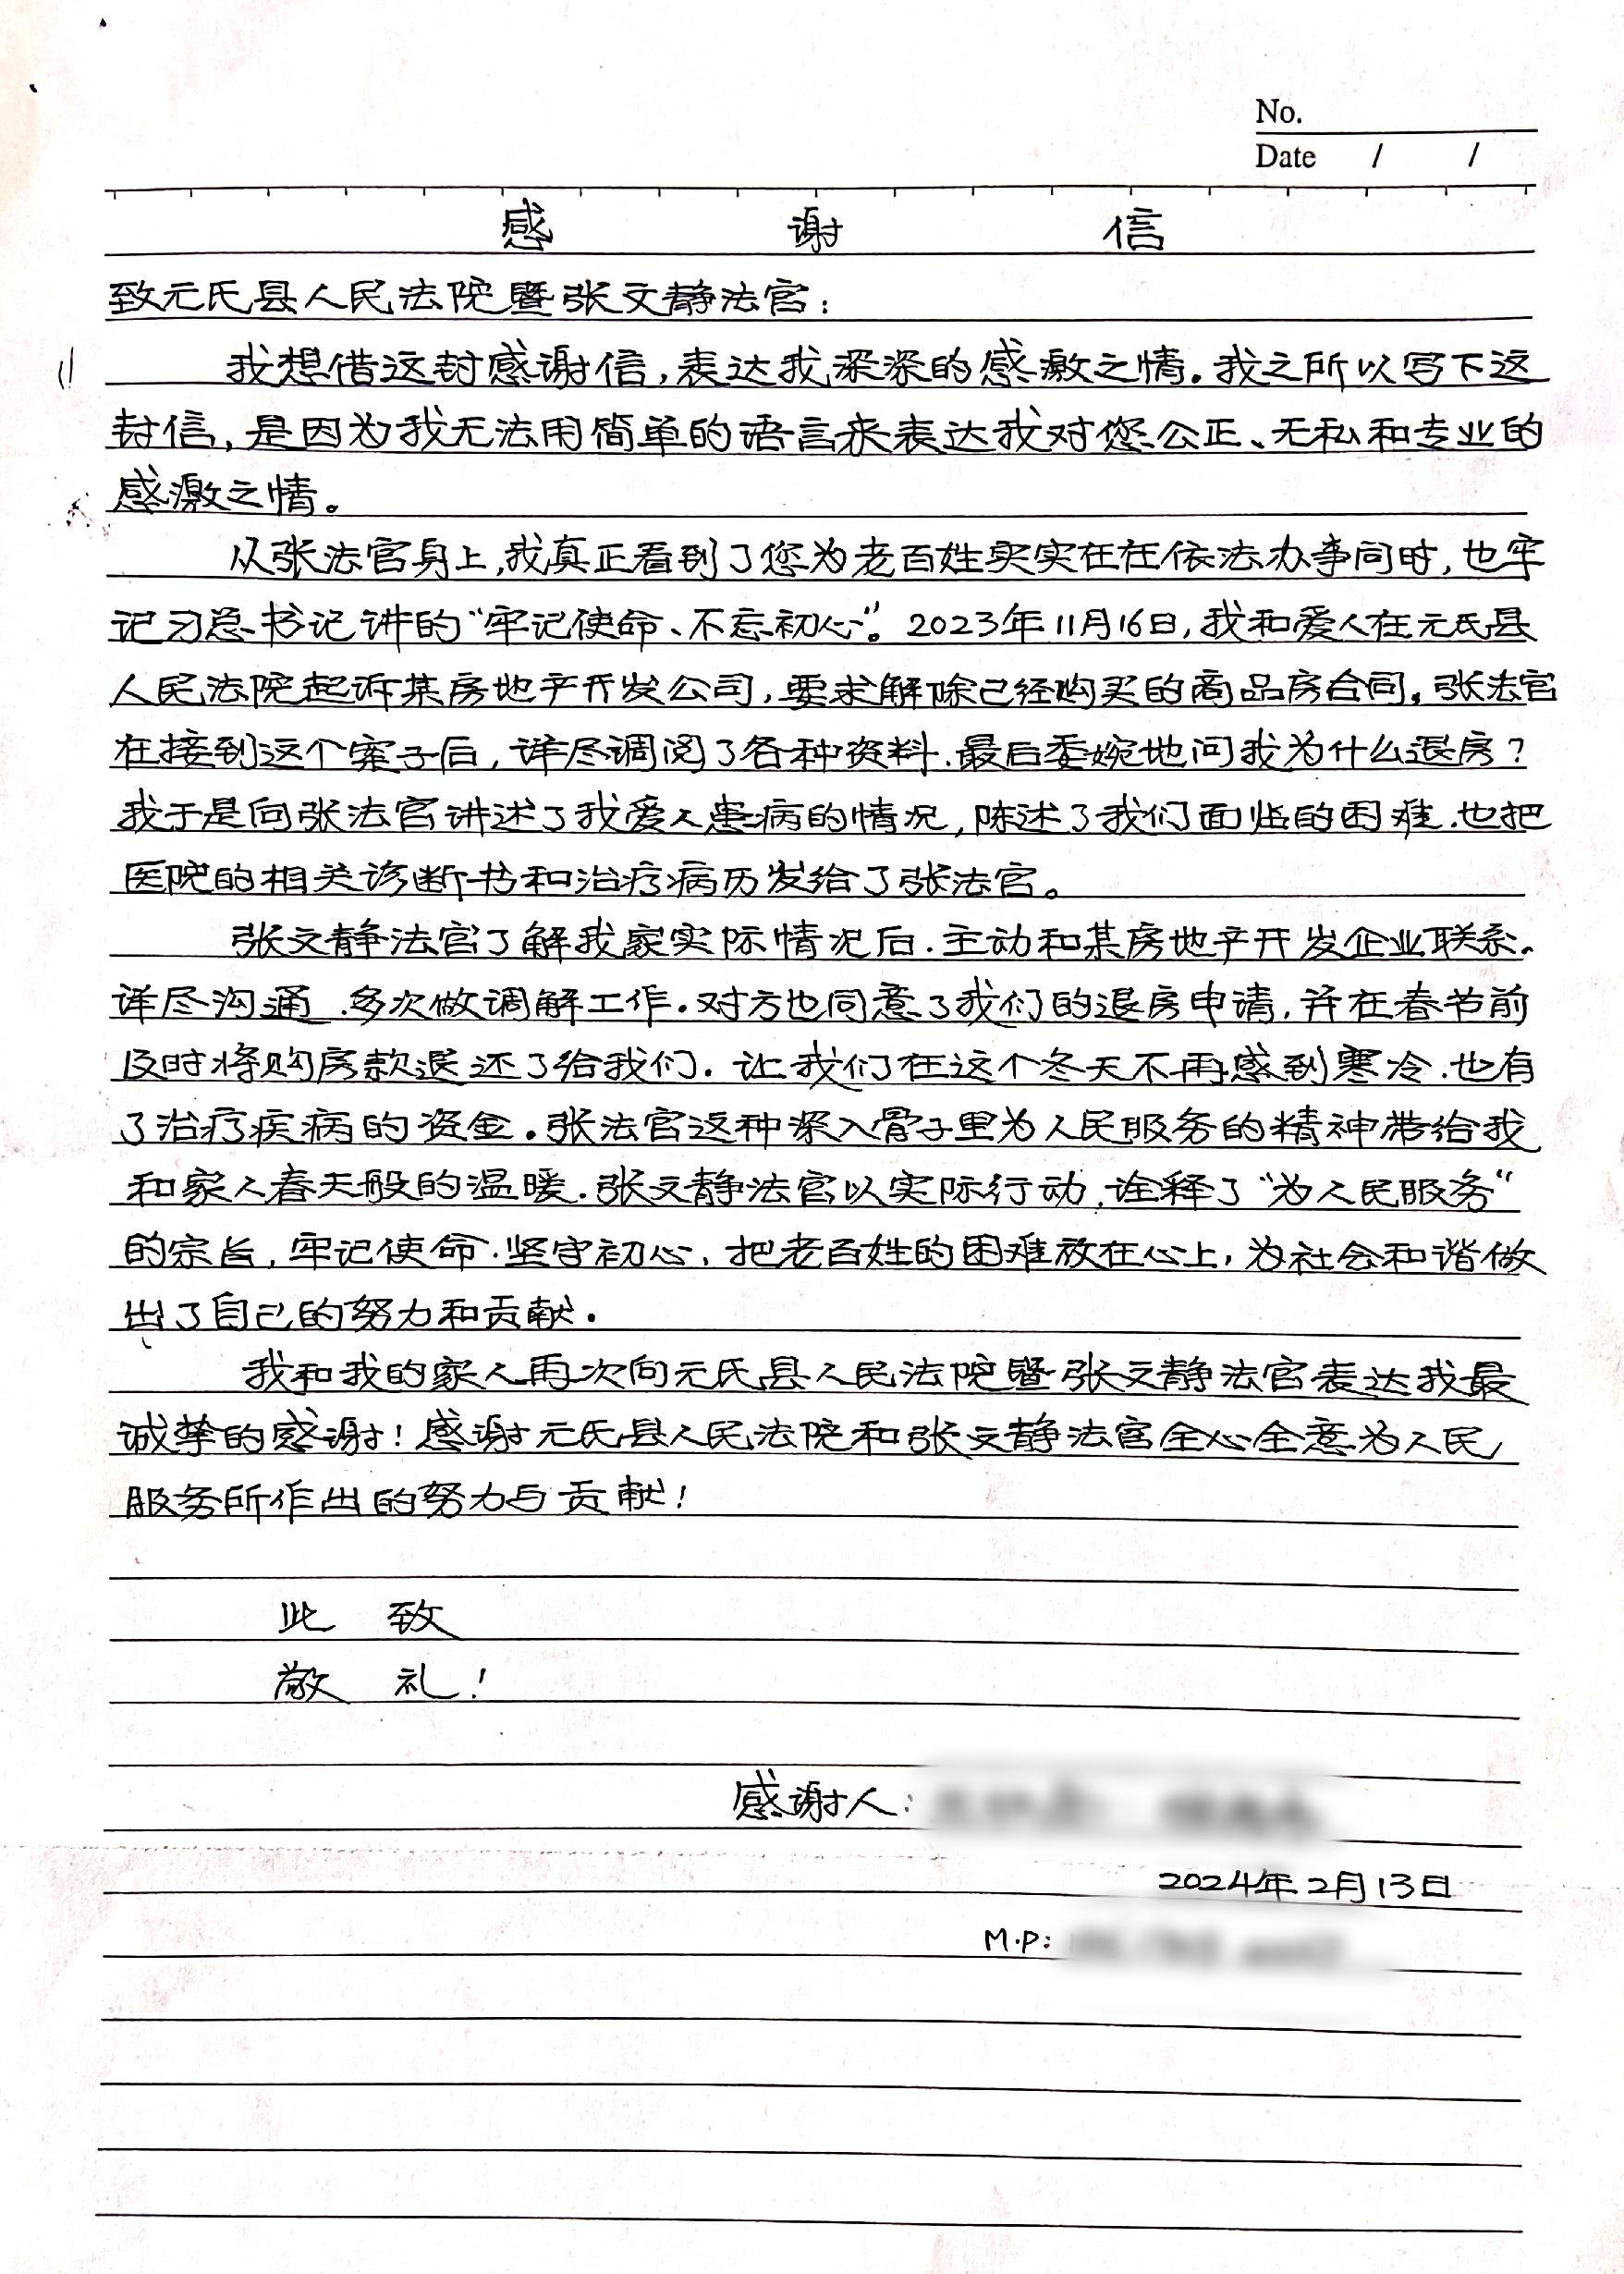 No.
Date / /
感 谢 信
致元氏县人民法院暨张文静法官：
我想借这封感谢信，表达我深深的感激之情。我之所以写下这
封信，是因为我无法用简单的语言来表达我对您公正、无私和专业的
感激之情。
从张法官身上，我真正看到了您为老百姓实实在在依法办事同时，也牢
记习总书记讲的“牢记使命、不忘初心”。2023年11月16日，我和爱人在元氏县
人民法院起诉某房地产开发公司，要求解除已经购买的商品房合同。张法官
在接到这个案子后，详尽调阅了各种资料．最后委婉地问我为什么退房？
我于是向张法官讲述了我爱人患病的情况，陈述了我们面临的困难．也把
医院的相关诊断书和治疗病历发给了张法官。
张文静法官了解我家实际情况后．主动和某房地产开发企业联系．
详尽沟通．多次做调解工作．对方也同意了我们的退房申请，并在春节前
及时将购房款退还了给我们．让我们在这个冬天不再感到寒冷．也有
了治疗疾病的资金．张法官这种深入骨子里为人民服务的精神带给我
和家人春天般的温暖．张文静法官以实际行动，诠释了“为人民服务“
的宗旨，牢记使命．坚守初心，把老百姓的困难放在心上，为社会和谐做
出了自己的努力和贡献．
我和我的家人再次向元氏县人民法院暨张文静法官表达我最
诚挚的感谢！感谢元氏县人民法院和张文静法官全心全意为人民
服务所作出的努力与贡献！
此 致
敬 礼！
感谢人：
2024年2月13日
M.P：